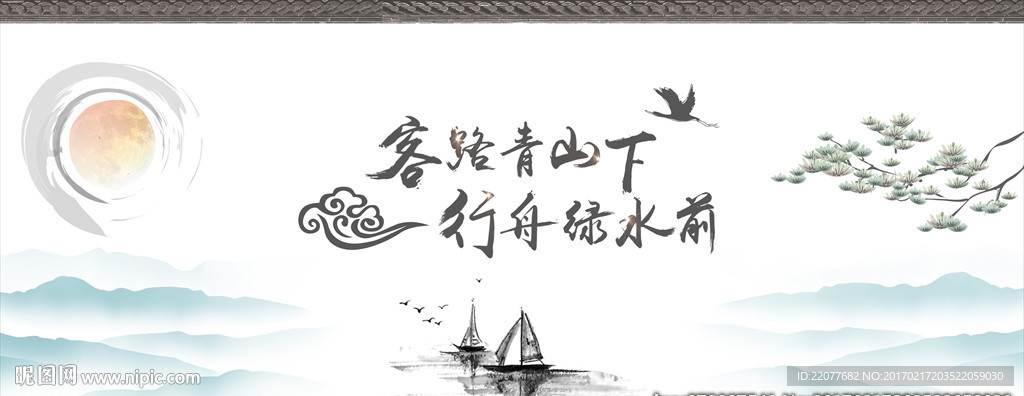 客路青山下
行舟绿水前
昵图网 www.nipic.com
ID:22077682 NO:20170217203522059030